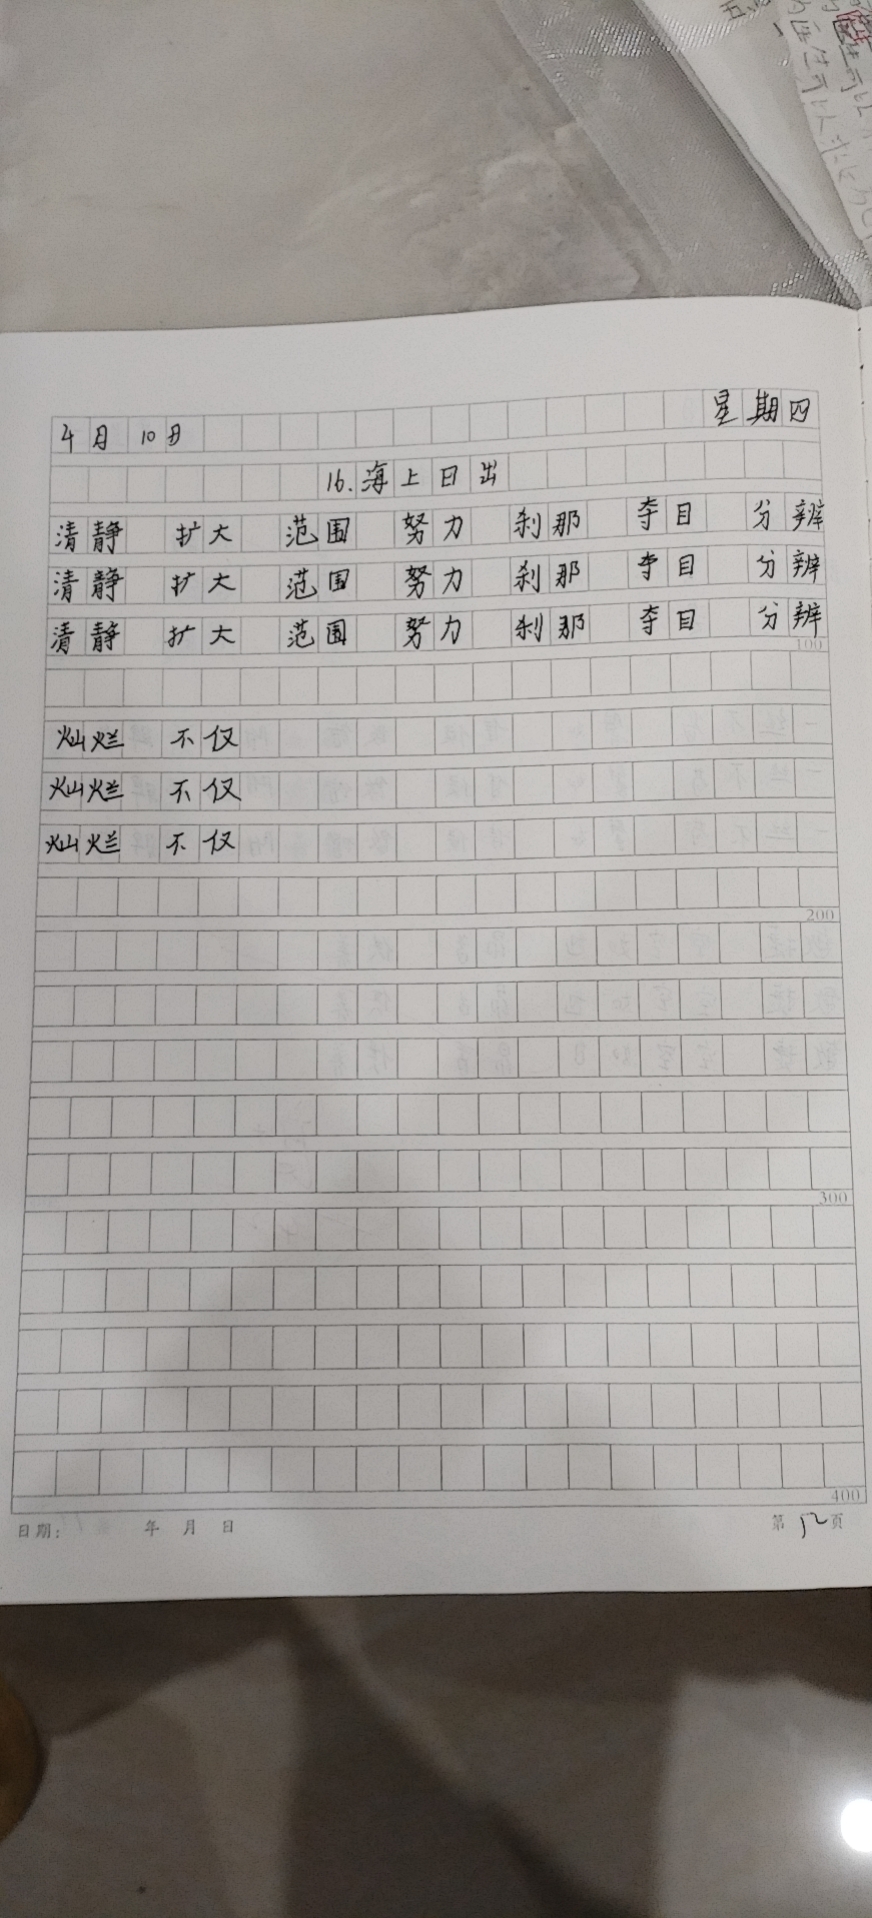 4月10日 星期四
16.海上日出
清静 扩大 范围 努力 刹那 夺目 分辨
清静 扩大 范围 努力 刹那 夺目 分辨
清静 扩大 范围 努力 刹那 夺目 分辨
100
灿烂 不仅
灿烂 不仅
灿烂 不仅
200
300
400
日期： 年 月 日 第12页